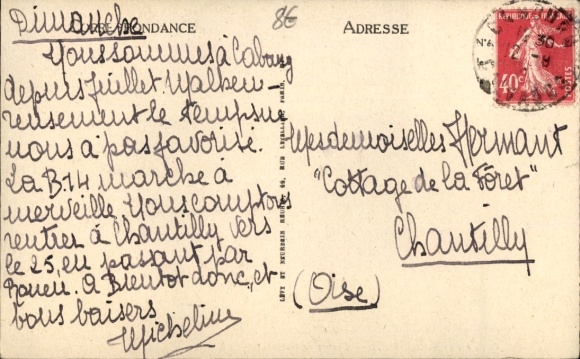 CORRESPONDANCE
8€
ADRESSE
Dimanche
Nous sommes à Cabourg
depuis juillet. Malheu-
reusement le temps ne
nous a pas favorisé.
La B.14 marche à
merveille. Nous comptons
rentrer à Chantilly vers
le 25, en passant par
Rouen. A Bientôt donc, et
bons baisers
Micheline
LEVY ET NEURDEIN RÉUNIS, 44, RUE LETELLIER, PARIS
REPUBLIQUE FRANÇAISE
40c
POSTES
Mesdemoiselles Hermant
"Cottage de la Forêt"
Chantilly
(Oise)